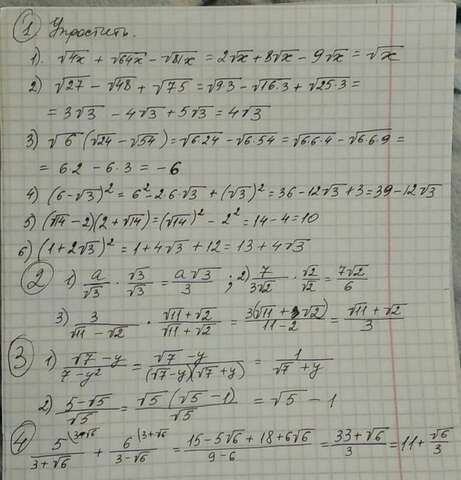 ① Упростить.
1). √4x + √64x - √81x = 2√x + 8√x - 9√x = √x
2) √27 - √48 + √75 = √9·3 - √16·3 + √25·3 =
= 3√3 - 4√3 + 5√3 = 4√3
3) √6 (√24 - √54) = √6·24 - √6·54 = √6·6·4 - √6·6·9 =
= 6·2 - 6·3 = -6
4) (6-√3)² = 6² - 2·6·√3 + (√3)² = 36 - 12√3 + 3 = 39 - 12√3
5) (√14 - 2)(2 + √14) = (√14)² - 2² = 14 - 4 = 10
6) (1 + 2√3)² = 1 + 4√3 + 12 = 13 + 4√3
② 1) a/√3 · √3/√3 = a√3/3 ; 2) 7/3√2 · √2/√2 = 7√2/6
3) 3/(√11 - √2) · (√11 + √2)/(√11 + √2) = 3(√11 + √2)/(11 - 2) = (√11 + √2)/3
③ 1) (√7 - y)/(7 - y²) = (√7 - y)/(√7 - y)(√7 + y) = 1/(√7 + y)
2) (5 - √5)/√5 = √5(√5 - 1)/√5 = √5 - 1
④ 5^(3-√6/(3+√6) + 6^(3+√6/(3-√6) = (15 - 5√6 + 18 + 6√6)/(9 - 6) = (33 + √6)/3 = 11 + √6/3